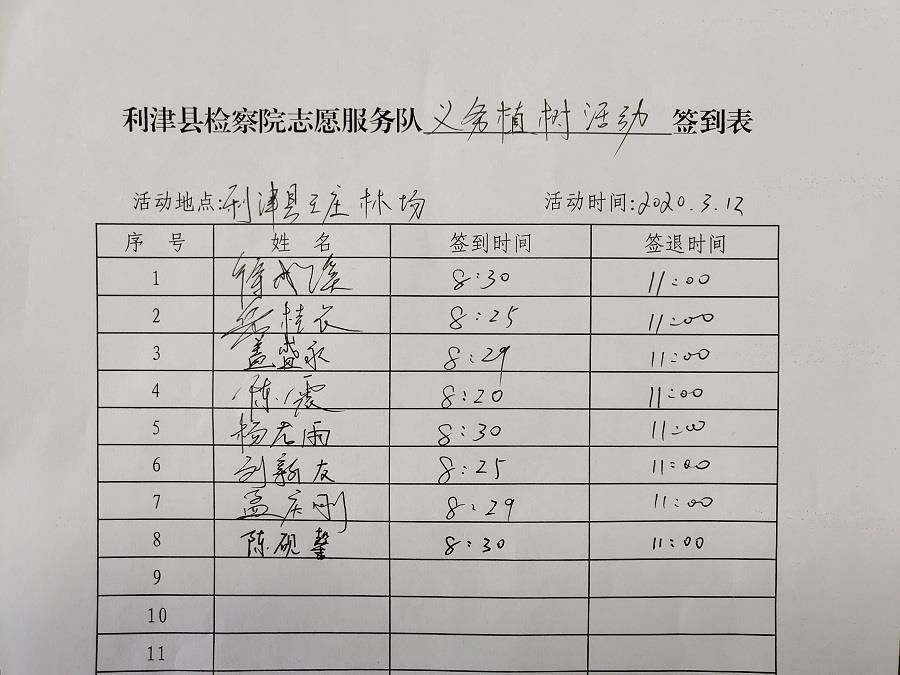 利津县检察院志愿服务队 义务植树活动 签到表
活动地点:利津县王庄林场 活动时间:2020.3.12
序号 姓名 签到时间 签退时间
1 8:30 11:00
2 桂衣 8:25 11:00
3 盖盛永 8:29 11:00
4 陈震 8:20 11:00
5 杨龙雨 8:30 11:00
6 刘新友 8:25 11:00
7 孟庆刚 8:29 11:00
8 陈砚馨 8:30 11:00
9
10
11